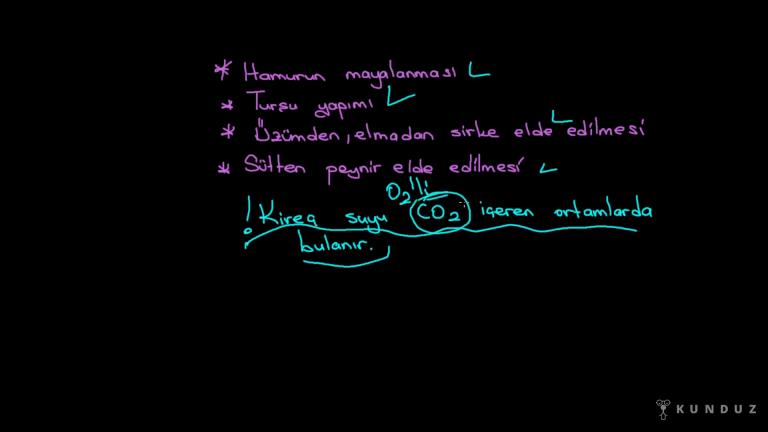 * Hamurun mayalanması
* Turşu yapımı
* Üzümden, elmadan sirke elde edilmesi
* Sütten peynir elde edilmesi
O₂
! Kireç suyu CO₂ içeren ortamlarda
bulanır.
KUNDUZ